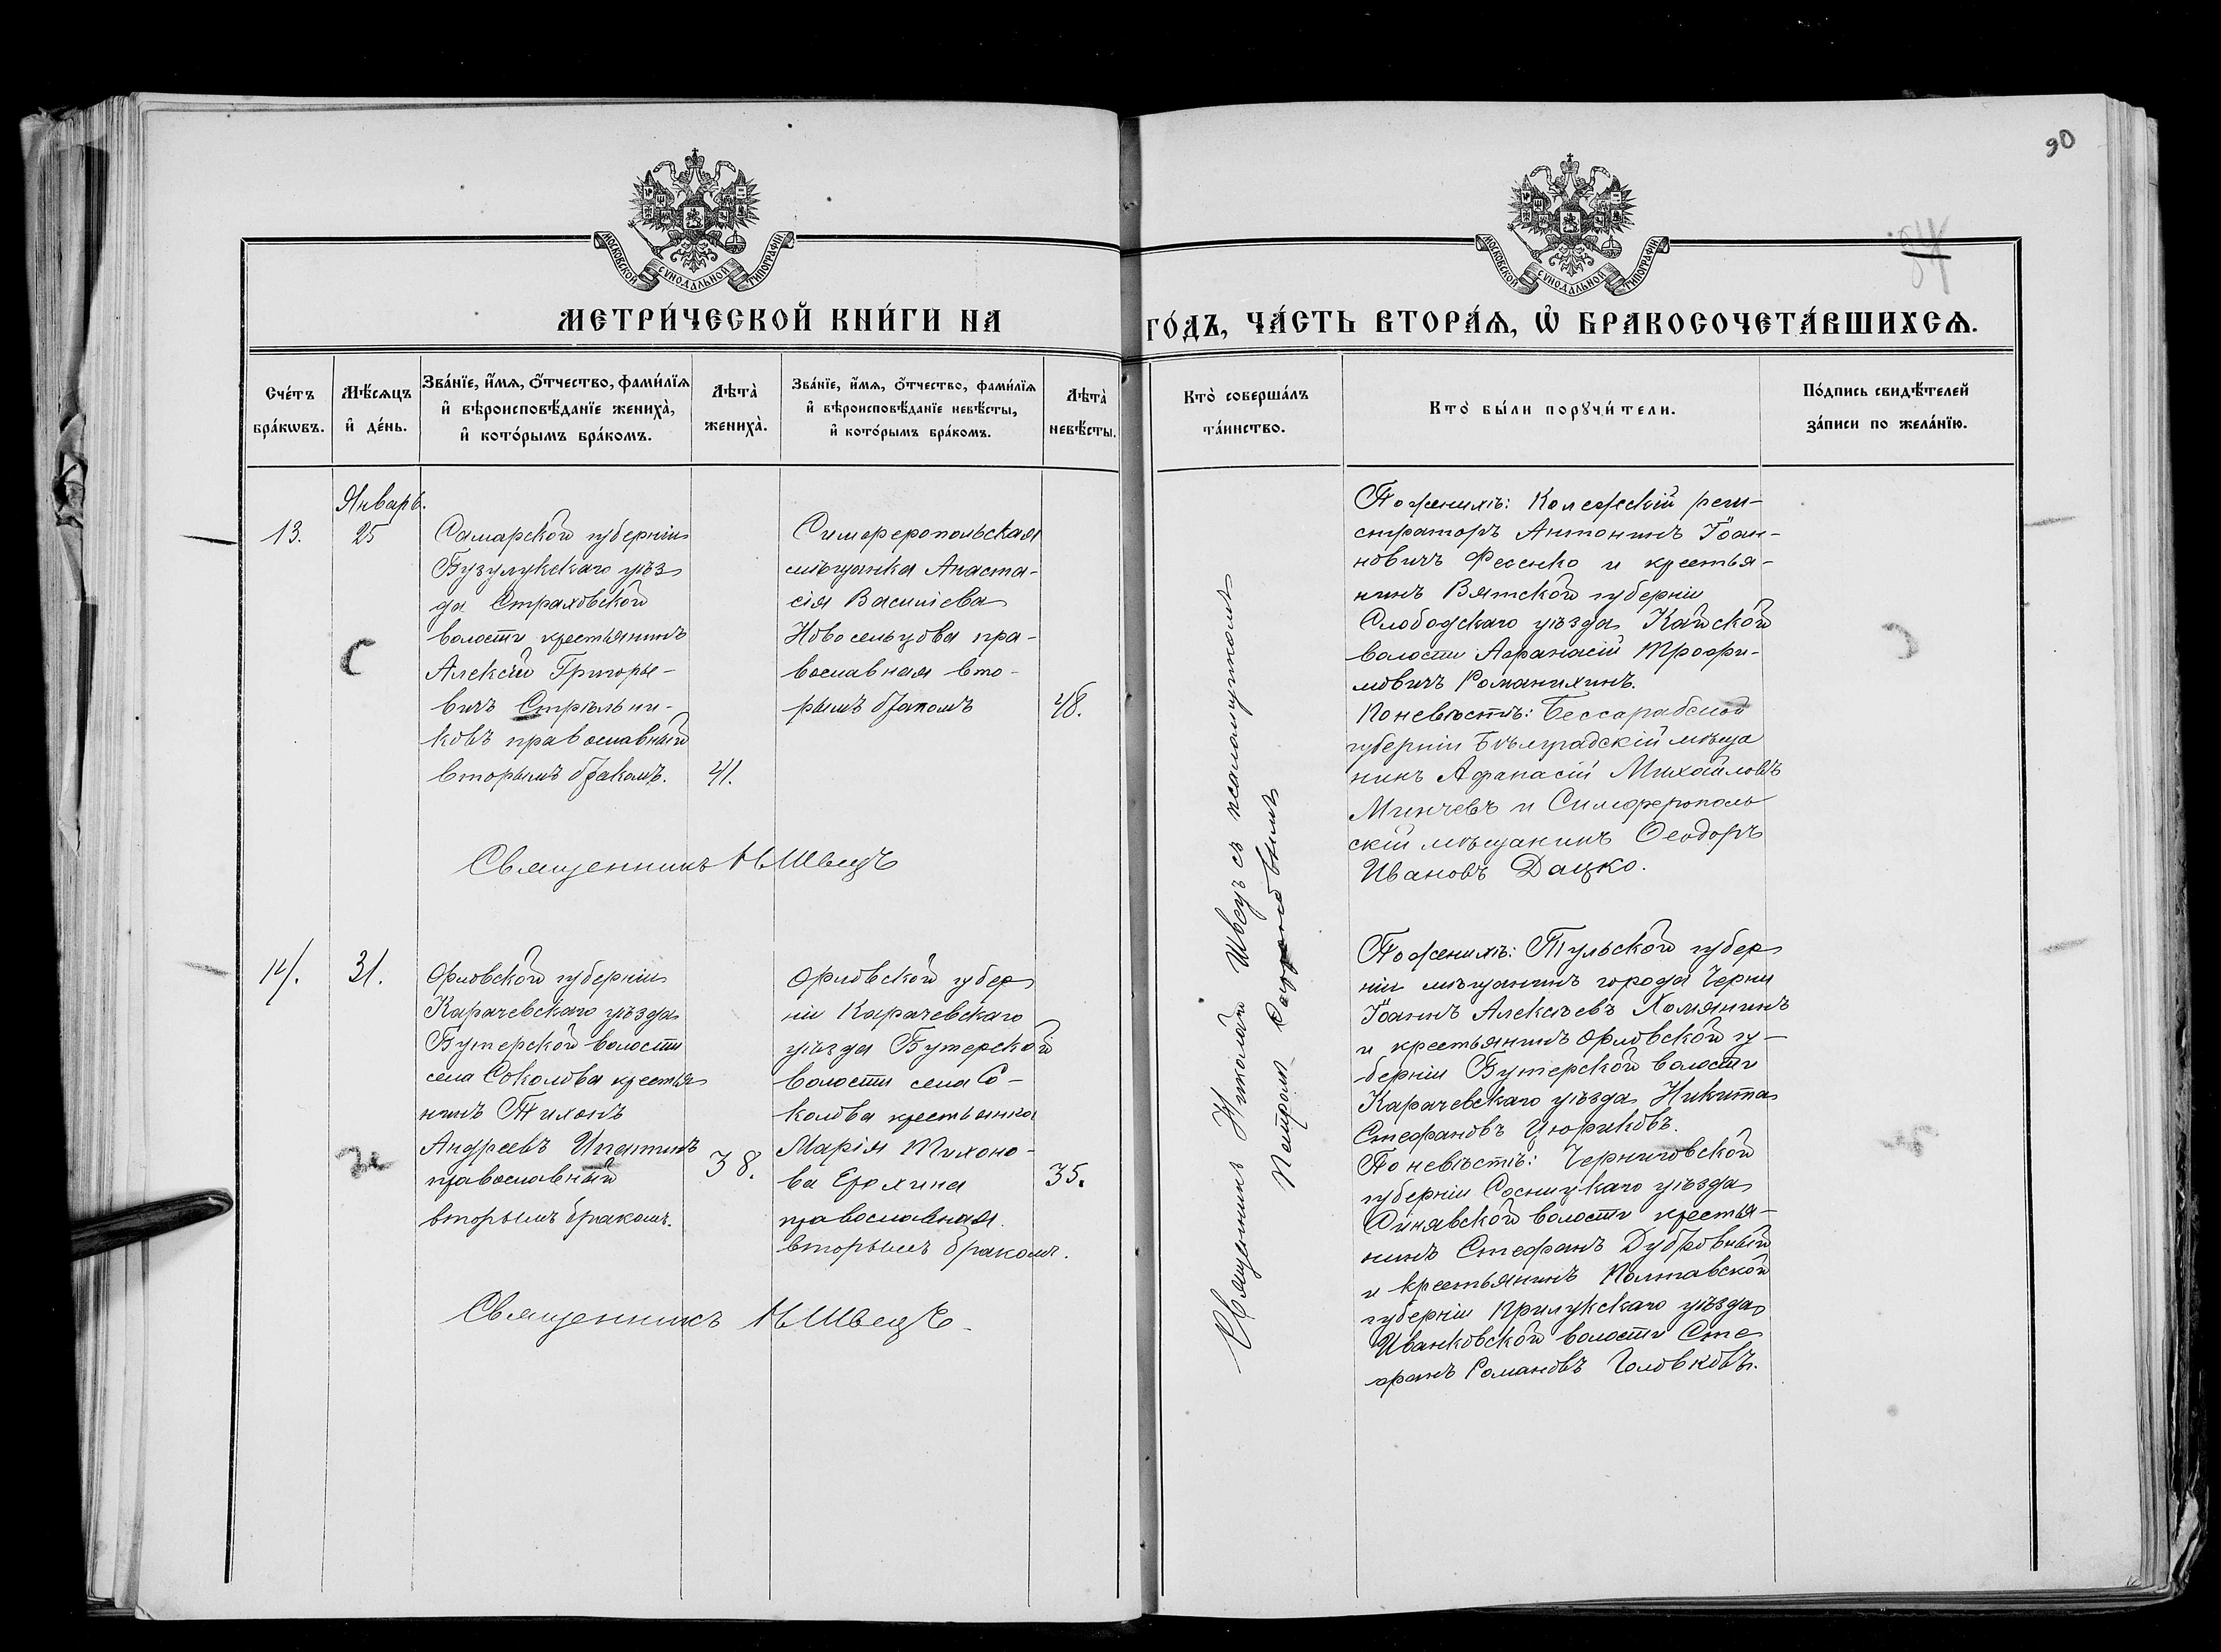 90
МОСКОВСКОЙ СѴНОДАЛЬНОЙ ТИПОГРАФІИ
МОСКОВСКОЙ СѴНОДАЛЬНОЙ ТИПОГРАФІИ
МЕТРИ́ЧЕСКОЙ КНИ́ГИ НА
ГО́ДЪ, ЧА́СТЬ ВТОРА́Ѧ, Ѽ БРАКОСОЧЕТА́ВШИХСѦ.
Сче́тъ
бра́кѡвъ.
Мѣ́сѧцъ
и҆ де́нь.
Зва́нїе, и҆́мѧ, ѻ҆́тчество, фами́лїѧ
и҆ вѣроисповѣ́данїе жениха̀,
и҆ кото́рымъ бра́комъ.
Лѣта̀
жениха̀.
Зва́нїе, и҆́мѧ, ѻ҆́тчество, фами́лїѧ
и҆ вѣроисповѣ́данїе невѣ́сты,
и҆ кото́рымъ бра́комъ.
Лѣта̀
невѣ́сты.
Кто̀ соверша́лъ
та́инство.
Кто̀ бы́ли порꙋчи́тели.
По́дпись свидѣ́телей
за́писи по жела́нїю.
Январь.
13.
25
Самарской губерніи
Бузулукскаго уѣз
да Страховской
волости крестьянинъ
Алексѣй Григорье-
вичъ Стрѣльни-
ковъ православный
вторымъ бракомъ.
41.
Симферопольская
мѣщанка Анаста-
сія Васильева
Новосельцова пра-
вославная вто-
рымъ бракомъ
48.
Священникъ Н Швецъ
Священникъ Николай Швецъ съ псаломщикомъ
Петромъ
По женихѣ: Колежскій реги-
страторъ Антонинъ Іоан-
новичъ Фесенко и крестья-
нинъ Вятской губерніи
Слободскаго уѣзда Кайской
волости Афанасій Трофи-
мовичъ Романихинъ.
По невѣстѣ: Бессарабской
губерніи Бѣлградскій мѣща
нинъ Афанасій Михайловъ
Минчевъ и Симферополь
скій мѣщанинъ Ѳеодоръ
Ивановъ Дацко.
14.
31.
Орловской губерніи
Карачевскаго уѣзда
Бутерской волости
села Соколова крестья
нинъ Тихонъ
Андреевъ Ипатинъ
православный
вторымъ бракомъ.
38.
Орловской губер
ніи Карачевскаго
уѣзда Бутерской
волости села Со-
колова крестьянка
Марія Тихоно-
ва Ерохина
православная
вторымъ бракомъ.
35.
Священникъ Н Швецъ
По женихѣ: Тульской губер
ніи мѣщанинъ города Черни
Іоаннъ Алексѣевъ Хомянинъ
и крестьянинъ Орловской гу-
берніи Бутерской волости
Карачевскаго уѣзда Никита
Стефановъ Цюриковъ.
По невѣстѣ: Черниговской
губерніи Сосницкаго уѣзда
Синявской волости крестья-
нинъ Стефанъ Дубровный
и крестьянинъ Полтавской
губерніи Прилукскаго уѣзда
Иванковской волости Сте
фанъ Романовъ Головковъ.